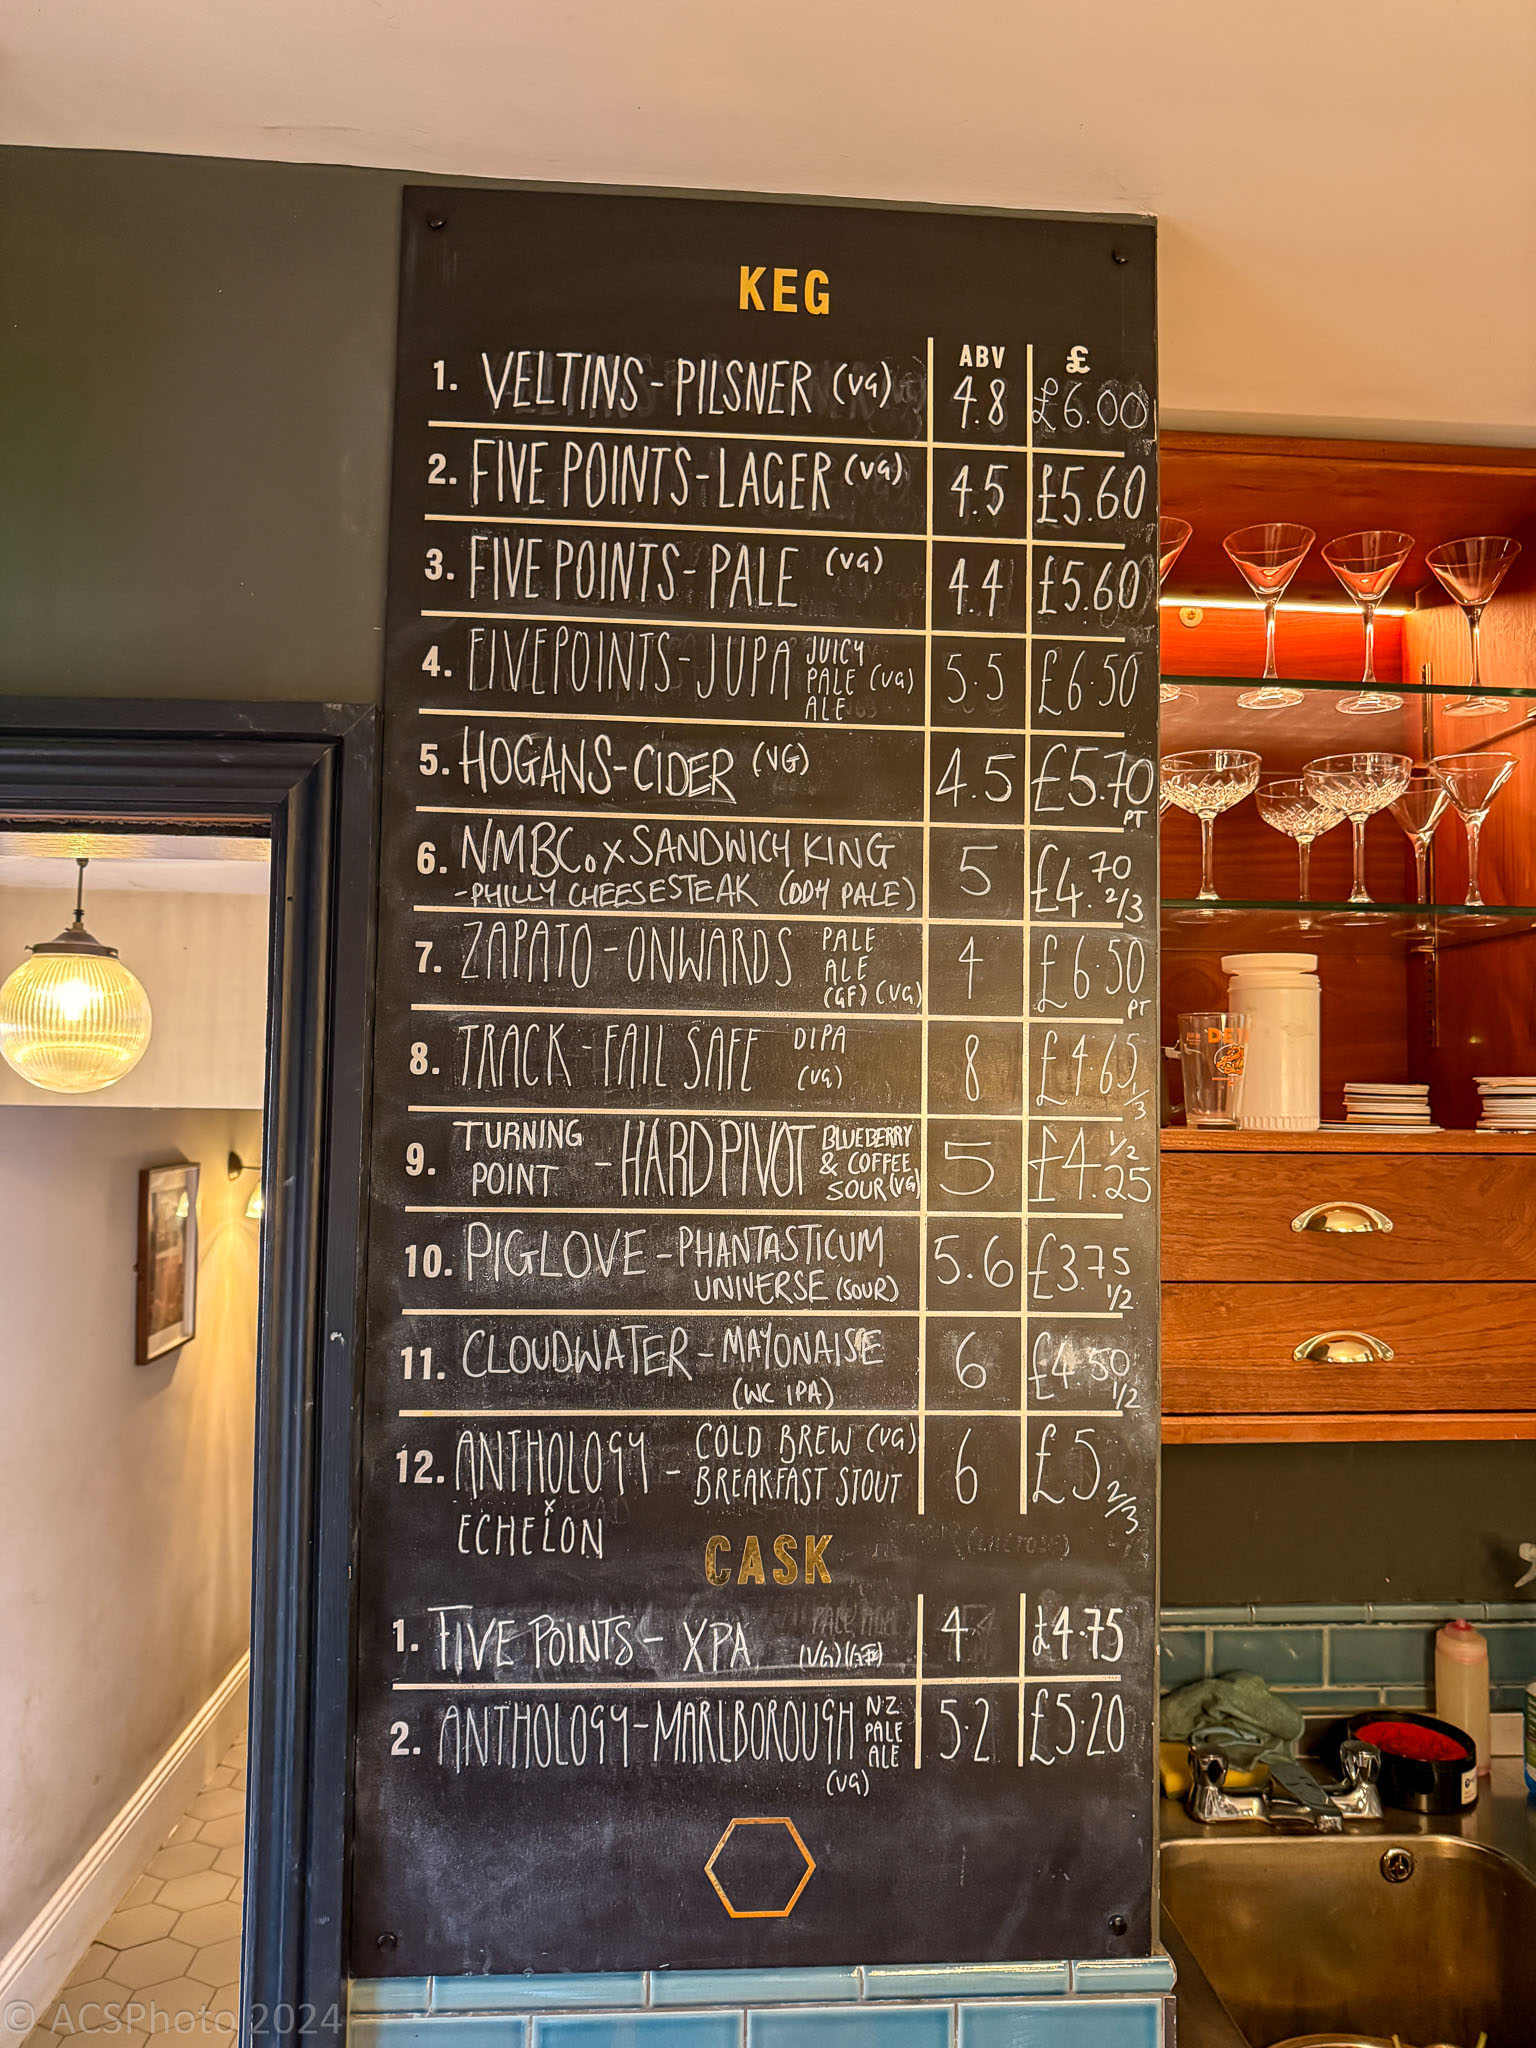 KEG
ABV £
1. VELTINS - PILSNER (VG) 4.8 £6.00
2. FIVE POINTS - LAGER (VG) 4.5 £5.60
3. FIVE POINTS - PALE (VG) 4.4 £5.60
4. FIVEPOINTS - JUPA JUICY PALE (VG) ALE 5.5 £6.50
5. HOGANS - CIDER (VG) 4.5 £5.70 PT
6. NMBCo x SANDWICH KING 5 £4.70 2/3
- PHILLY CHEESESTEAK (DDH PALE)
7. ZAPATO - ONWARDS PALE ALE (GF) (VG) 4 £6.50 PT
8. TRACK - FAIL SAFE DIPA (VG) 8 £4.65 1/3
9. TURNING POINT - HARD PIVOT BLUEBERRY & COFFEE SOUR (VG) 5 £4.25 1/2
10. PIGLOVE - PHANTASTICUM 5.6 £3.75 1/2
UNIVERSE (SOUR)
11. CLOUDWATER - MAYONAISE 6 £4.50 1/2
(WC IPA)
12. ANTHOLOGY x ECHELON - COLD BREW (VG) BREAKFAST STOUT 6 £5 2/3
CASK
1. FIVE POINTS - XPA (VG) 4. £4.75
2. ANTHOLOGY - MARLBOROUGH NZ PALE ALE (VG) 5.2 £5.20
© ACSPhoto 2024